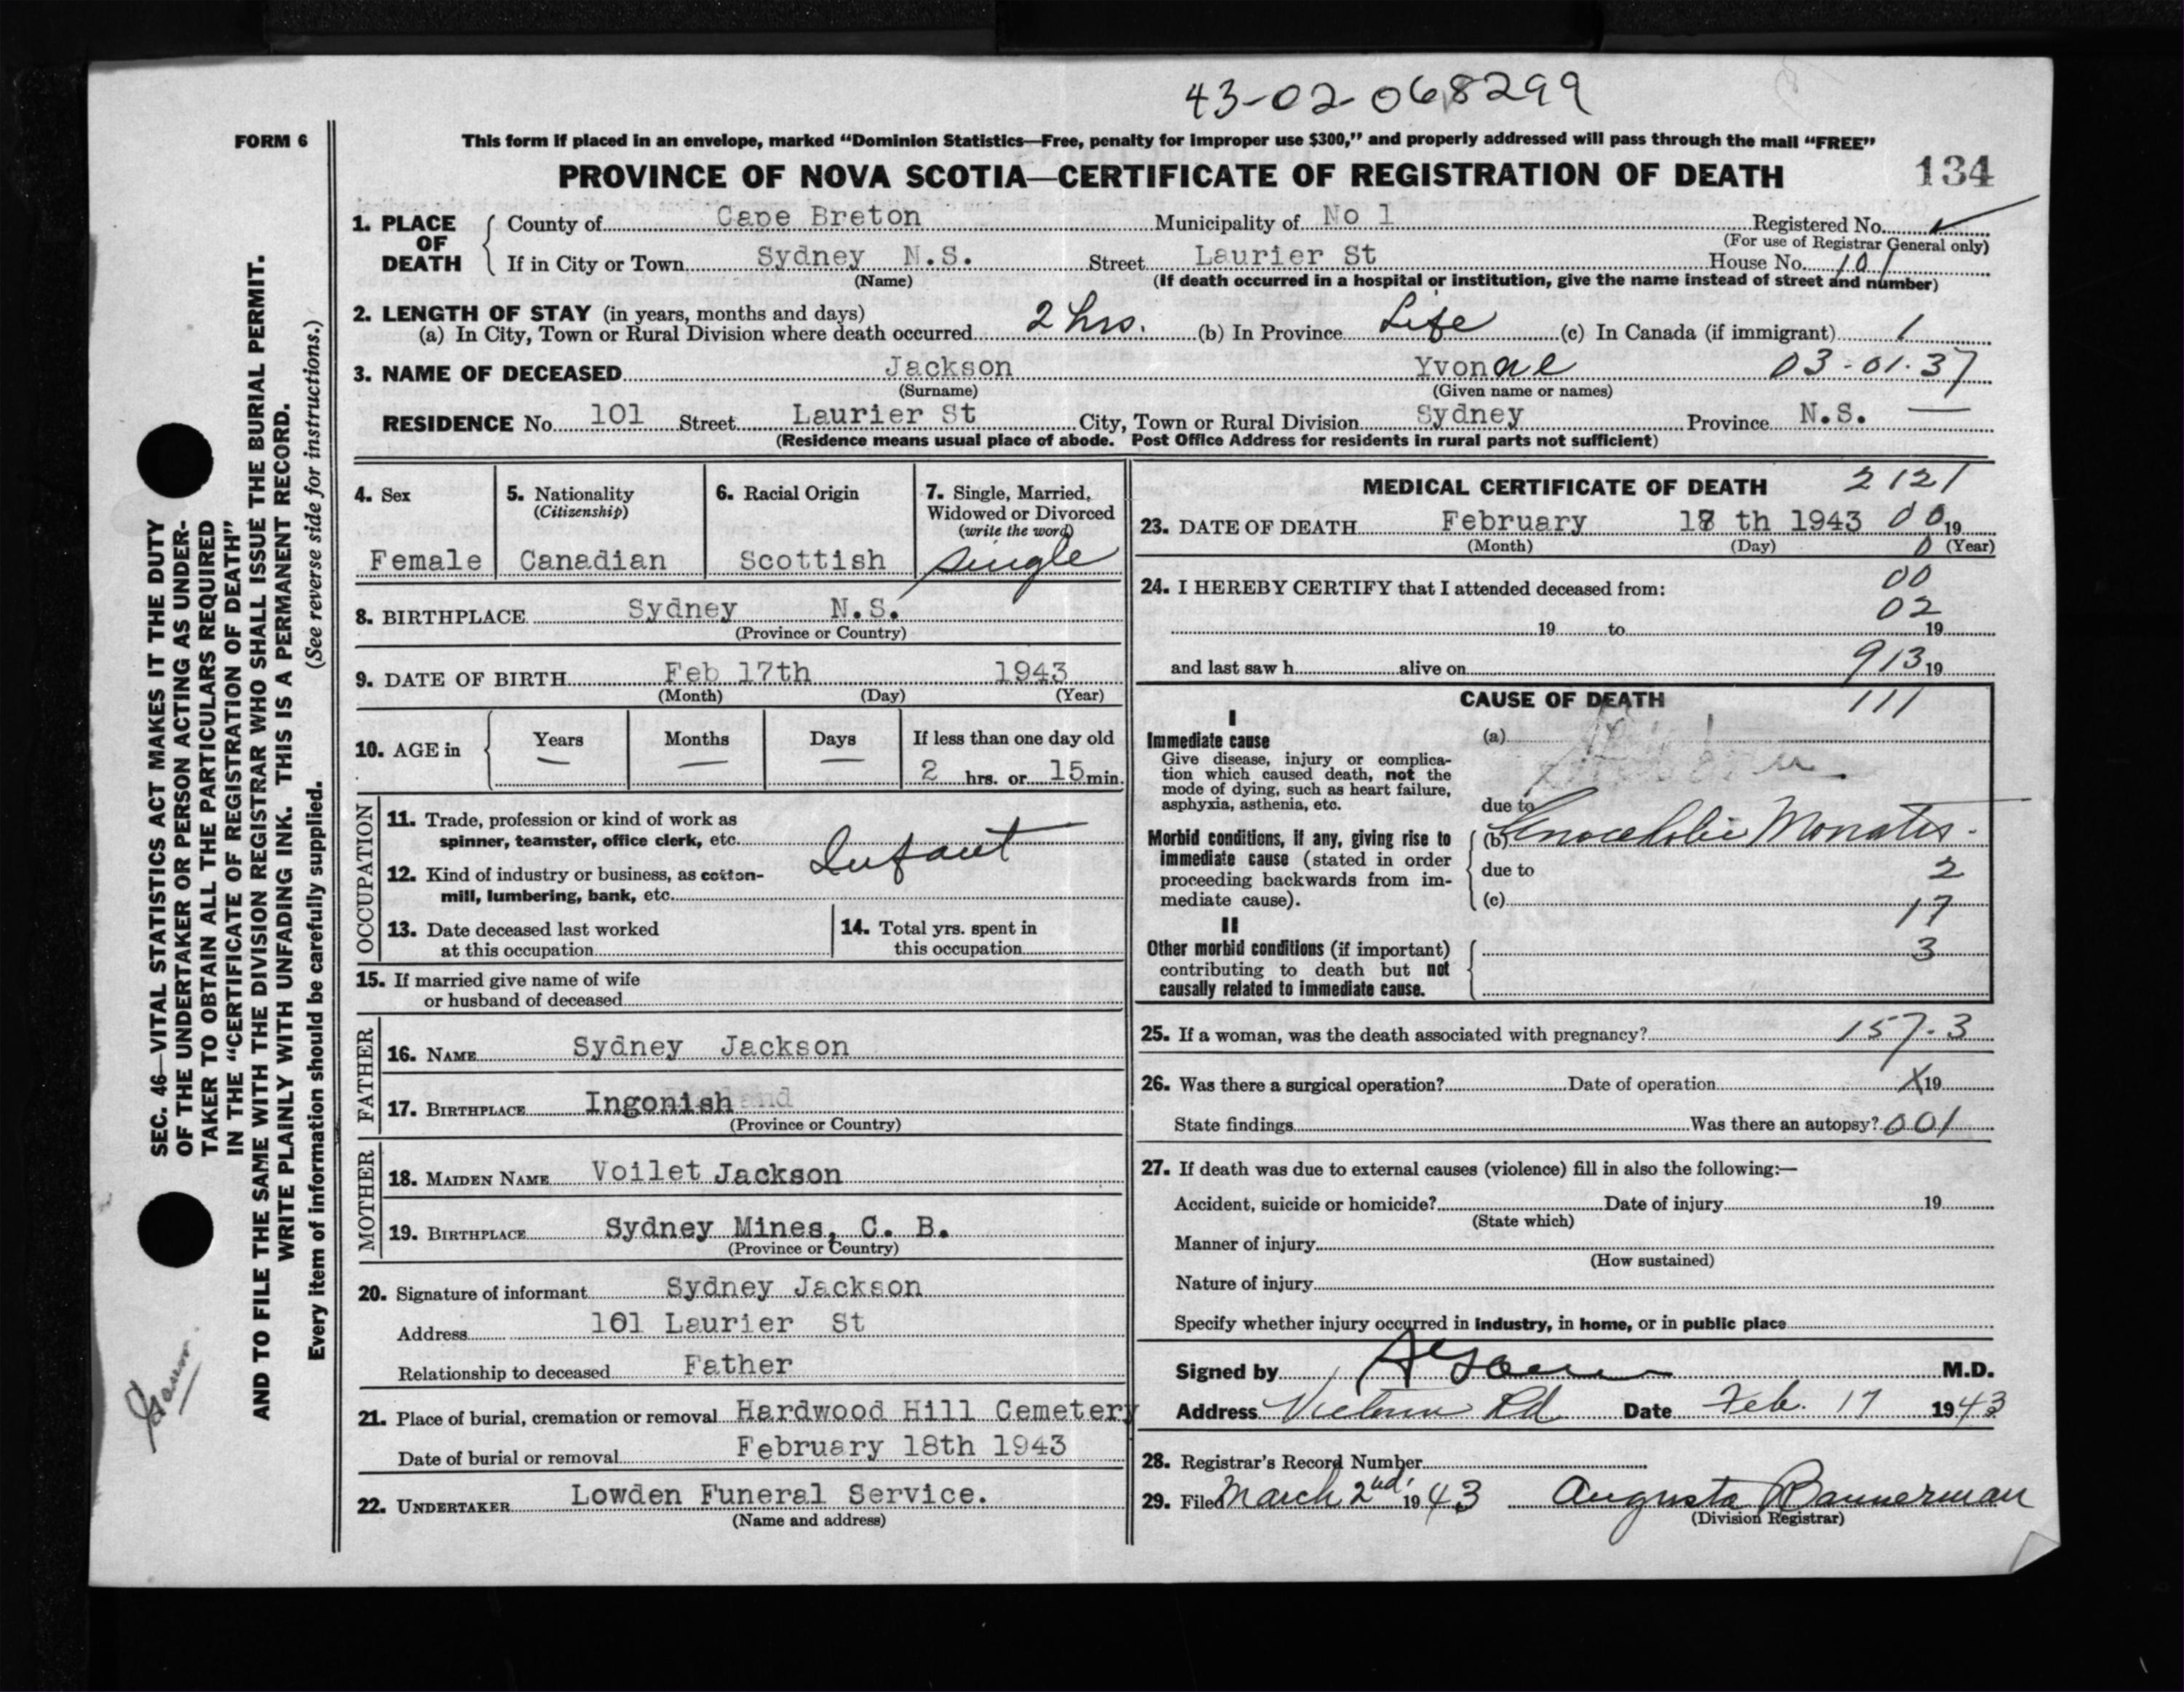 43-02-068299
FORM 6
This form if placed in an envelope, marked “Dominion Statistics—Free, penalty for improper use $300,” and properly addressed will pass through the mail “FREE”
PROVINCE OF NOVA SCOTIA—CERTIFICATE OF REGISTRATION OF DEATH
134
1. PLACE OF DEATH
County of Cape Breton Municipality of No 1 Registered No.
(For use of Registrar General only)
If in City or Town Sydney N.S. Street Laurier St House No. 101
(Name) (If death occurred in a hospital or institution, give the name instead of street and number)
2. LENGTH OF STAY (in years, months and days)
(a) In City, Town or Rural Division where death occurred 2 hrs. (b) In Province Life (c) In Canada (if immigrant) 1
3. NAME OF DECEASED Jackson Yvonne 03-01-37
(Surname) (Given name or names)
RESIDENCE No. 101 Street Laurier St City, Town or Rural Division Sydney Province N.S. —
(Residence means usual place of abode. Post Office Address for residents in rural parts not sufficient)
4. Sex
Female
5. Nationality
(Citizenship)
Canadian
6. Racial Origin
Scottish
7. Single, Married,
Widowed or Divorced
(write the word)
single
8. BIRTHPLACE Sydney N.S.
(Province or Country)
9. DATE OF BIRTH Feb 17th 1943
(Month) (Day) (Year)
10. AGE in
Years Months Days If less than one day old
— — — 2 hrs. or 15 min.
OCCUPATION
11. Trade, profession or kind of work as
spinner, teamster, office clerk, etc.
Infant
12. Kind of industry or business, as cotton-
mill, lumbering, bank, etc.
13. Date deceased last worked
at this occupation
14. Total yrs. spent in
this occupation
15. If married give name of wife
or husband of deceased
FATHER
16. NAME Sydney Jackson
17. BIRTHPLACE Ingonish
(Province or Country)
MOTHER
18. MAIDEN NAME Voilet Jackson
19. BIRTHPLACE Sydney Mines, C. B.
(Province or Country)
20. Signature of informant Sydney Jackson
Address 101 Laurier St
Relationship to deceased Father
21. Place of burial, cremation or removal Hardwood Hill Cemetery
Date of burial or removal February 18th 1943
22. UNDERTAKER Lowden Funeral Service.
(Name and address)
MEDICAL CERTIFICATE OF DEATH 2121
23. DATE OF DEATH February 17 th 1943 00 19
(Month) (Day) 0 (Year)
24. I HEREBY CERTIFY that I attended deceased from:
00
02
19 to 19
and last saw h alive on 913 19
CAUSE OF DEATH 111
I
Immediate cause (a)
Give disease, injury or complica-
tion which caused death, not the
mode of dying, such as heart failure,
asphyxia, asthenia, etc.
due to
Morbid conditions, if any, giving rise to
immediate cause (stated in order
proceeding backwards from im-
mediate cause).
(b)
due to 2
(c) 17
II
Other morbid conditions (if important) 3
contributing to death but not
causally related to immediate cause.
25. If a woman, was the death associated with pregnancy? 157.3
26. Was there a surgical operation? Date of operation X 19
State findings Was there an autopsy? 001
27. If death was due to external causes (violence) fill in also the following:—
Accident, suicide or homicide? Date of injury 19
(State which)
Manner of injury
(How sustained)
Nature of injury
Specify whether injury occurred in industry, in home, or in public place
Signed by M.D.
Address Victoria Rd Date Feb. 17 1943
28. Registrar's Record Number
29. Filed March 2nd 1943 Augusta Bannerman
(Division Registrar)
SEC. 46—VITAL STATISTICS ACT MAKES IT THE DUTY
OF THE UNDERTAKER OR PERSON ACTING AS UNDER-
TAKER TO OBTAIN ALL THE PARTICULARS REQUIRED
IN THE “CERTIFICATE OF REGISTRATION OF DEATH”
AND TO FILE THE SAME WITH THE DIVISION REGISTRAR WHO SHALL ISSUE THE BURIAL PERMIT.
WRITE PLAINLY WITH UNFADING INK. THIS IS A PERMANENT RECORD.
Every item of information should be carefully supplied. (See reverse side for instructions.)